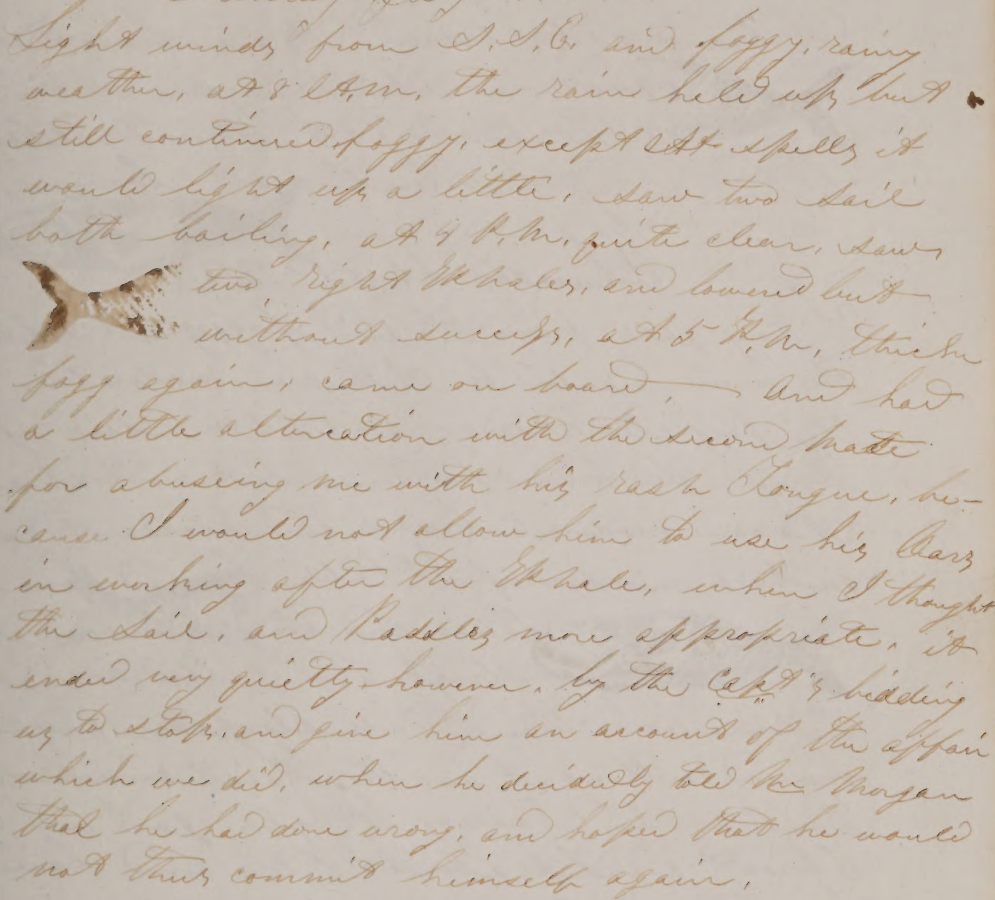 Light winds from S.S.E. and foggy, rainy
weather, at 8 A.m. the rain held up, but
still continued foggy, except At spells it
would light up a little, saw two sail
both boiling, at 4 P.M. quite clear, saw
two right Whales, and lowered but
without success, at 5 P.M. thick
fogg again, came on board, — And had
a little altercation with the second Mate
for abuseing me with his rash Tongue, be-
cause I would not allow him to use his Oars
in working after the Whale, when I thought
the Sail, and Paddles more appropriate, it
ended very quietly however, by the Capt's bidding
us to stop, and give him an account of the affair
which we did, when he decidedly told Mr Morgan
that he had done wrong, and hoped that he would
not thus commit himself again.